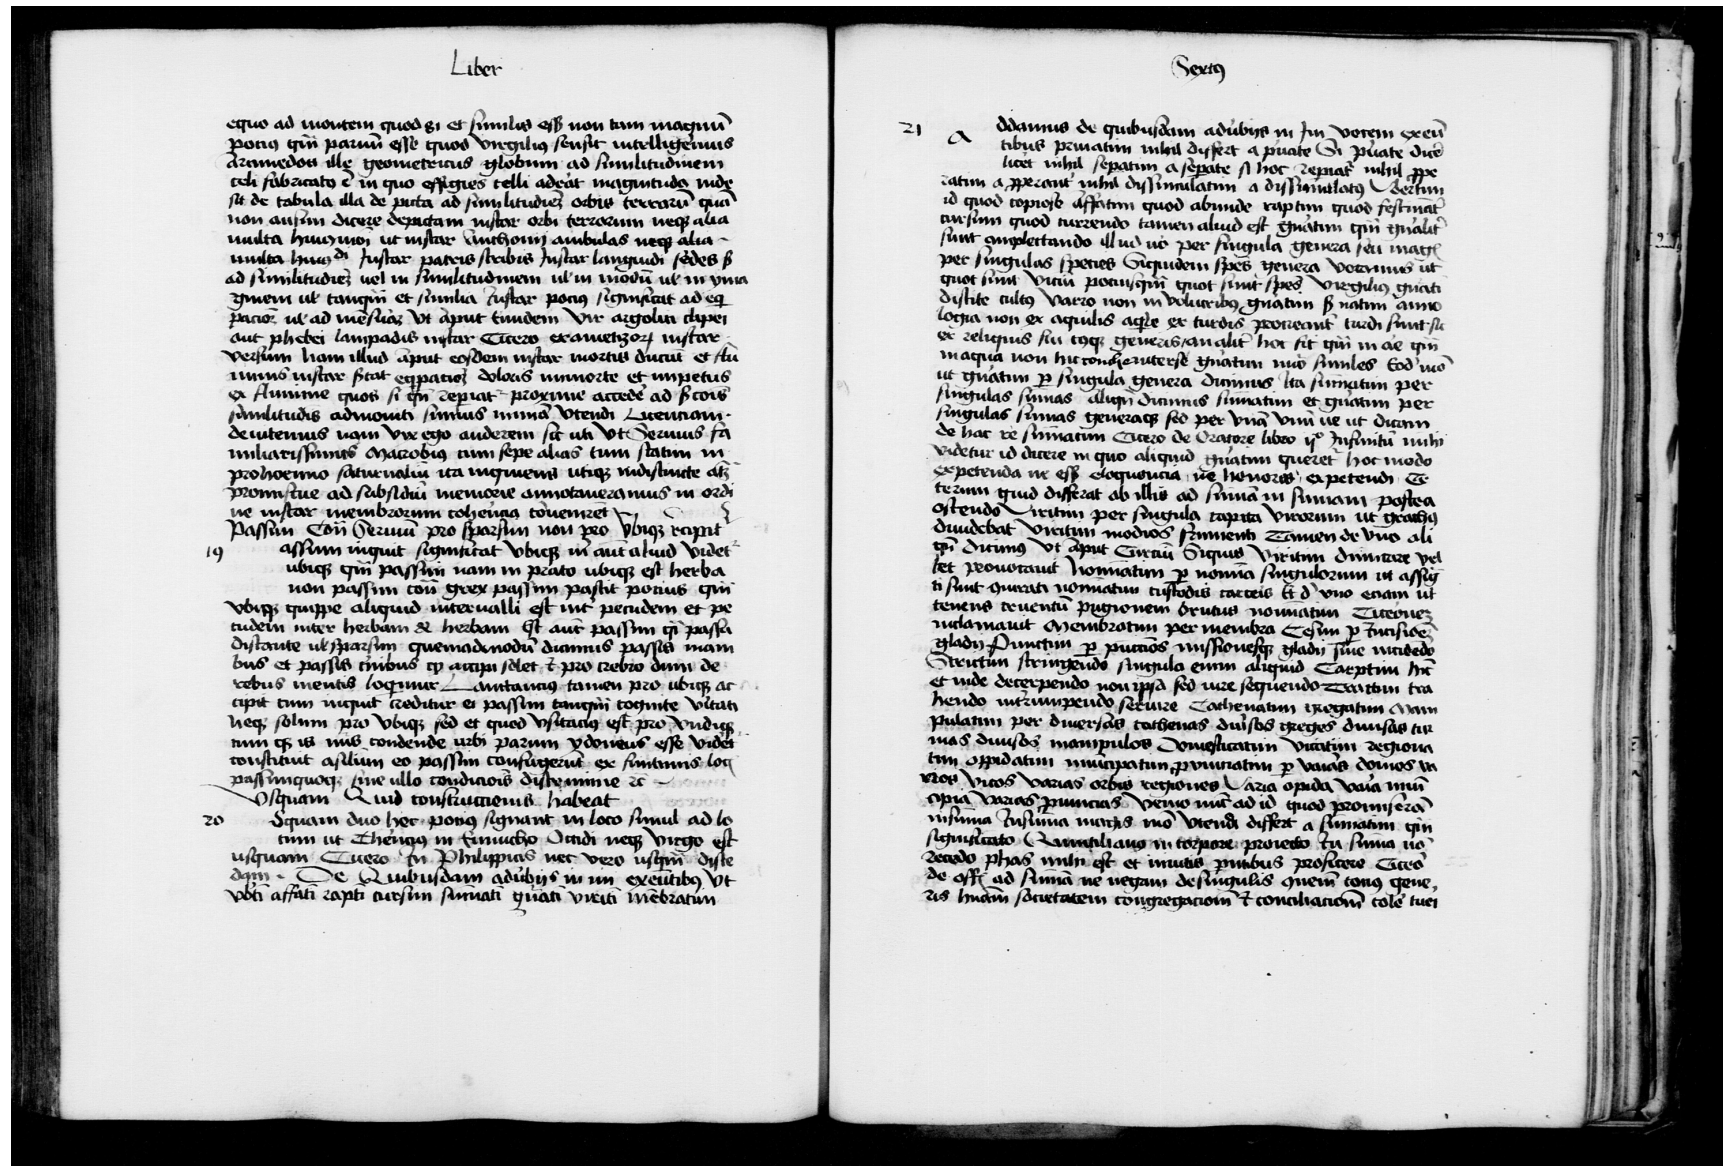 Liber
equo ad montem quod si et similis esset non tam magnum
potius quam parvum esse quod Virgilius sensit intelligemus
Arcimedon ille geometricus globum ad similitudinem
celi fabricato in quo effigies celli adeat magnitudo inde
sit de tabula illa de picta ad similitudinem orbis terrarum quam
non ausim dicere depictam instar orbi terrorum neque alia
multa huiusmodi ut instar Anthonij ambulas neque alia
multa huiusmodi Instar patris scribis Instar languidi sedes sed
ad similitudinem vel in similitudinem vel in modum vel in yma
ginem vel tanquam et similia Instar potius significat ad equi
paracionem vel ad mensuram Ut aput eundem Vir argolici clipei
aut phebei lampadis instar Cicero exametrorum instar
versuum Nam illud aput eosdem instar mortis ducunt et flu
minis instar
ex flumine quos si quando reperiat proxime accedere ad
similitudinis admoniti sumus nimiam utendi Licenciam
devitemus nam vix ego auderem sic uti ut Servius fa
miliarissimus Macrobius cum sepe alias tum statim in
prohoemio saturnalium ita inquiens utique indistincte atque
promiscue ad subsidium memorie annotaveramus in ordi
ne instar membrorum coherencia convenirent
Passim Contra Servium pro sparsim non pro Ubique capit
19 assim inquit significat ubique mihi autem aliud videtur
ubique quam passim nam in prato ubique est herba
non passim contra grex passim pascit potius quam
Ubique quippe aliquid intervalli est inter pecudem et pe
cudem inter herbam et herbam Est autem passim quasi passa
distante vel sparsim quemadmodum dicimus passis mani
bus et passis crinibus accipi solet et pro crebro dum de
rebus mentis loquimur Lanctancius tamen pro ubique ac
cipit cum inquit creditur ei passim tanquam cognite veritati
neque solum pro Ubique sed et quod usitacius est pro undique
cum is nimis condende urbi parum ydoneus esse videretur
constituit asilum eo passim confugerunt ex finitimis locis
passimquoque sine ullo condicionis discrimine etc
Usquam Quid construccionis habeat
20 Usquam duo hec potius signant in loco simul ad lo
cum ut Therencius in Eunucho Occidi neque virgo est
usquam Cicero In Philippicis nec vero usquam disce
dam De Quibusdam adverbijs in im exeuntibus Ut
uberti affati rapti cursim summati generati viriti membratim
Sextus
21 Addamus de quibusdam adverbijs in Im vocem exeun
tibus privatim nihil differt a private Si private dicere
licet nihil separatim a separate si hoc reperiatur nihil prope
ratim a properanter nihil dissimulatim a dissimilatus Ubertim
id quod copiose Affatim quod abunde raptim quod festinanter
cursim quod currendo tamen aliud est generatim quam generaliter
sunt amplectando illud vero per singula genera seu magis
per singulas species Siquidem species genera vocamus ut
quot sunt vicia potiusquam quot sunt species Virgilius generati
discite cultus Varro non in volucribus generatim sed natim anno
logia non ex aquilis aquile ex turdis procreantur turdi sunt sic
ex reliquis sui cuiusque generis
in aqua non hic conche interse generatim sunt similes Eodem modo
ut generatim per singula genera dicimus Ita summatim per
singulas summas aliquando dicimus summatim et generatim per
singulas summas generaque sed per unam unum ve ut dicam
de hac re summatim Cicero de Oratore libro ijo Infinitum mihi
videtur id dicere in quo aliquid generatim queretur hoc modo
expetenda ne esset eloquencia ne honores expetendi Ce
terum quid differat ab illis ad summam in summam postea
ostendo Viritim per singula capita virorum ut gracchus
dividebat viritim modios frumenti Tamen de uno ali
quando dicimus Ut aput Curcium Siquis Viritim dimicare vel
let provocavit Nominatim per nomina singulorum ut assig
ti sunt curati nominatim custodis carceris Et de uno eciam ut
tenens cruentum pugionem brutus nominatim Ciceronem
inclamavit Membratim per membra Cesim per Incisionem
gladij Punctim per punctiones missionesque gladij sine incidendo
Strictim stringendo singula enim aliquid Carptim hinc
et inde decerpendo non ipsa sed iure sequendo Tractim tra
hendo interrumpendo serivre Cathenatim gregatim Mani
pulatim per diversas cathenas diversos greges diversas tur
mas diversos manipulos Domesticatim vicatim regiona
tim oppidatim municipatim provinciatim per varias domos va
rios vicos varias orbis regiones Varia opida varia muni
cipia varias provincias Venio nunc ad id quod promiseram
insumma Insumma magis modo utendi differt a summatim quam
significato Quintilianus in corpore proiecto In summa non
recedo phas mihi est et invitis parentibus proficere Cicero
de officiis ad summam ne negam desingulis quem tocius gene
ris humani societatem congregacionem et conciliacionem colere tueri